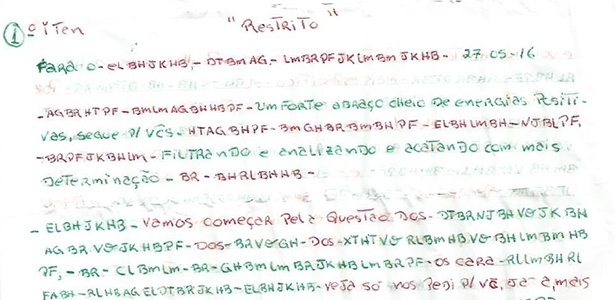 1º iTen "RestriTo"
Para o - ELBHJKHB, - DTBMAG, - LMBRPFJKLMBM JKHB - 27-05-16
- AGBRHTPF - BMLMAGBHHBPF - Um forte abraço cheio de energias Positi-
vas, segue P/ vcs - HTAGBHPF - BMGHBRBMBHPF - ELBHLMBH - NJBLPF,
- BRPFJKBHLM - FiLTRANDO e analizando e acatando com mais
DeTerminação - BR - BHRLBHHB -
- ELBHJKHB - Vamos começar Pela QuesTão Dos - DTBRNJBHVGJKBH
AGBRVGJKHBPF - Dos - BRVGH - Dos - XTHTVG RLBMHBVGBHLMBMHB
PF, - BR - CLBMLM - BR - GHBMLMBRJKHBLMBRPF - os cara - RLLMBHRL
FABH - RLHBAGELDTBRJKHB - ELBHJKHB - veja só nos Pedi P/ vc, a mais